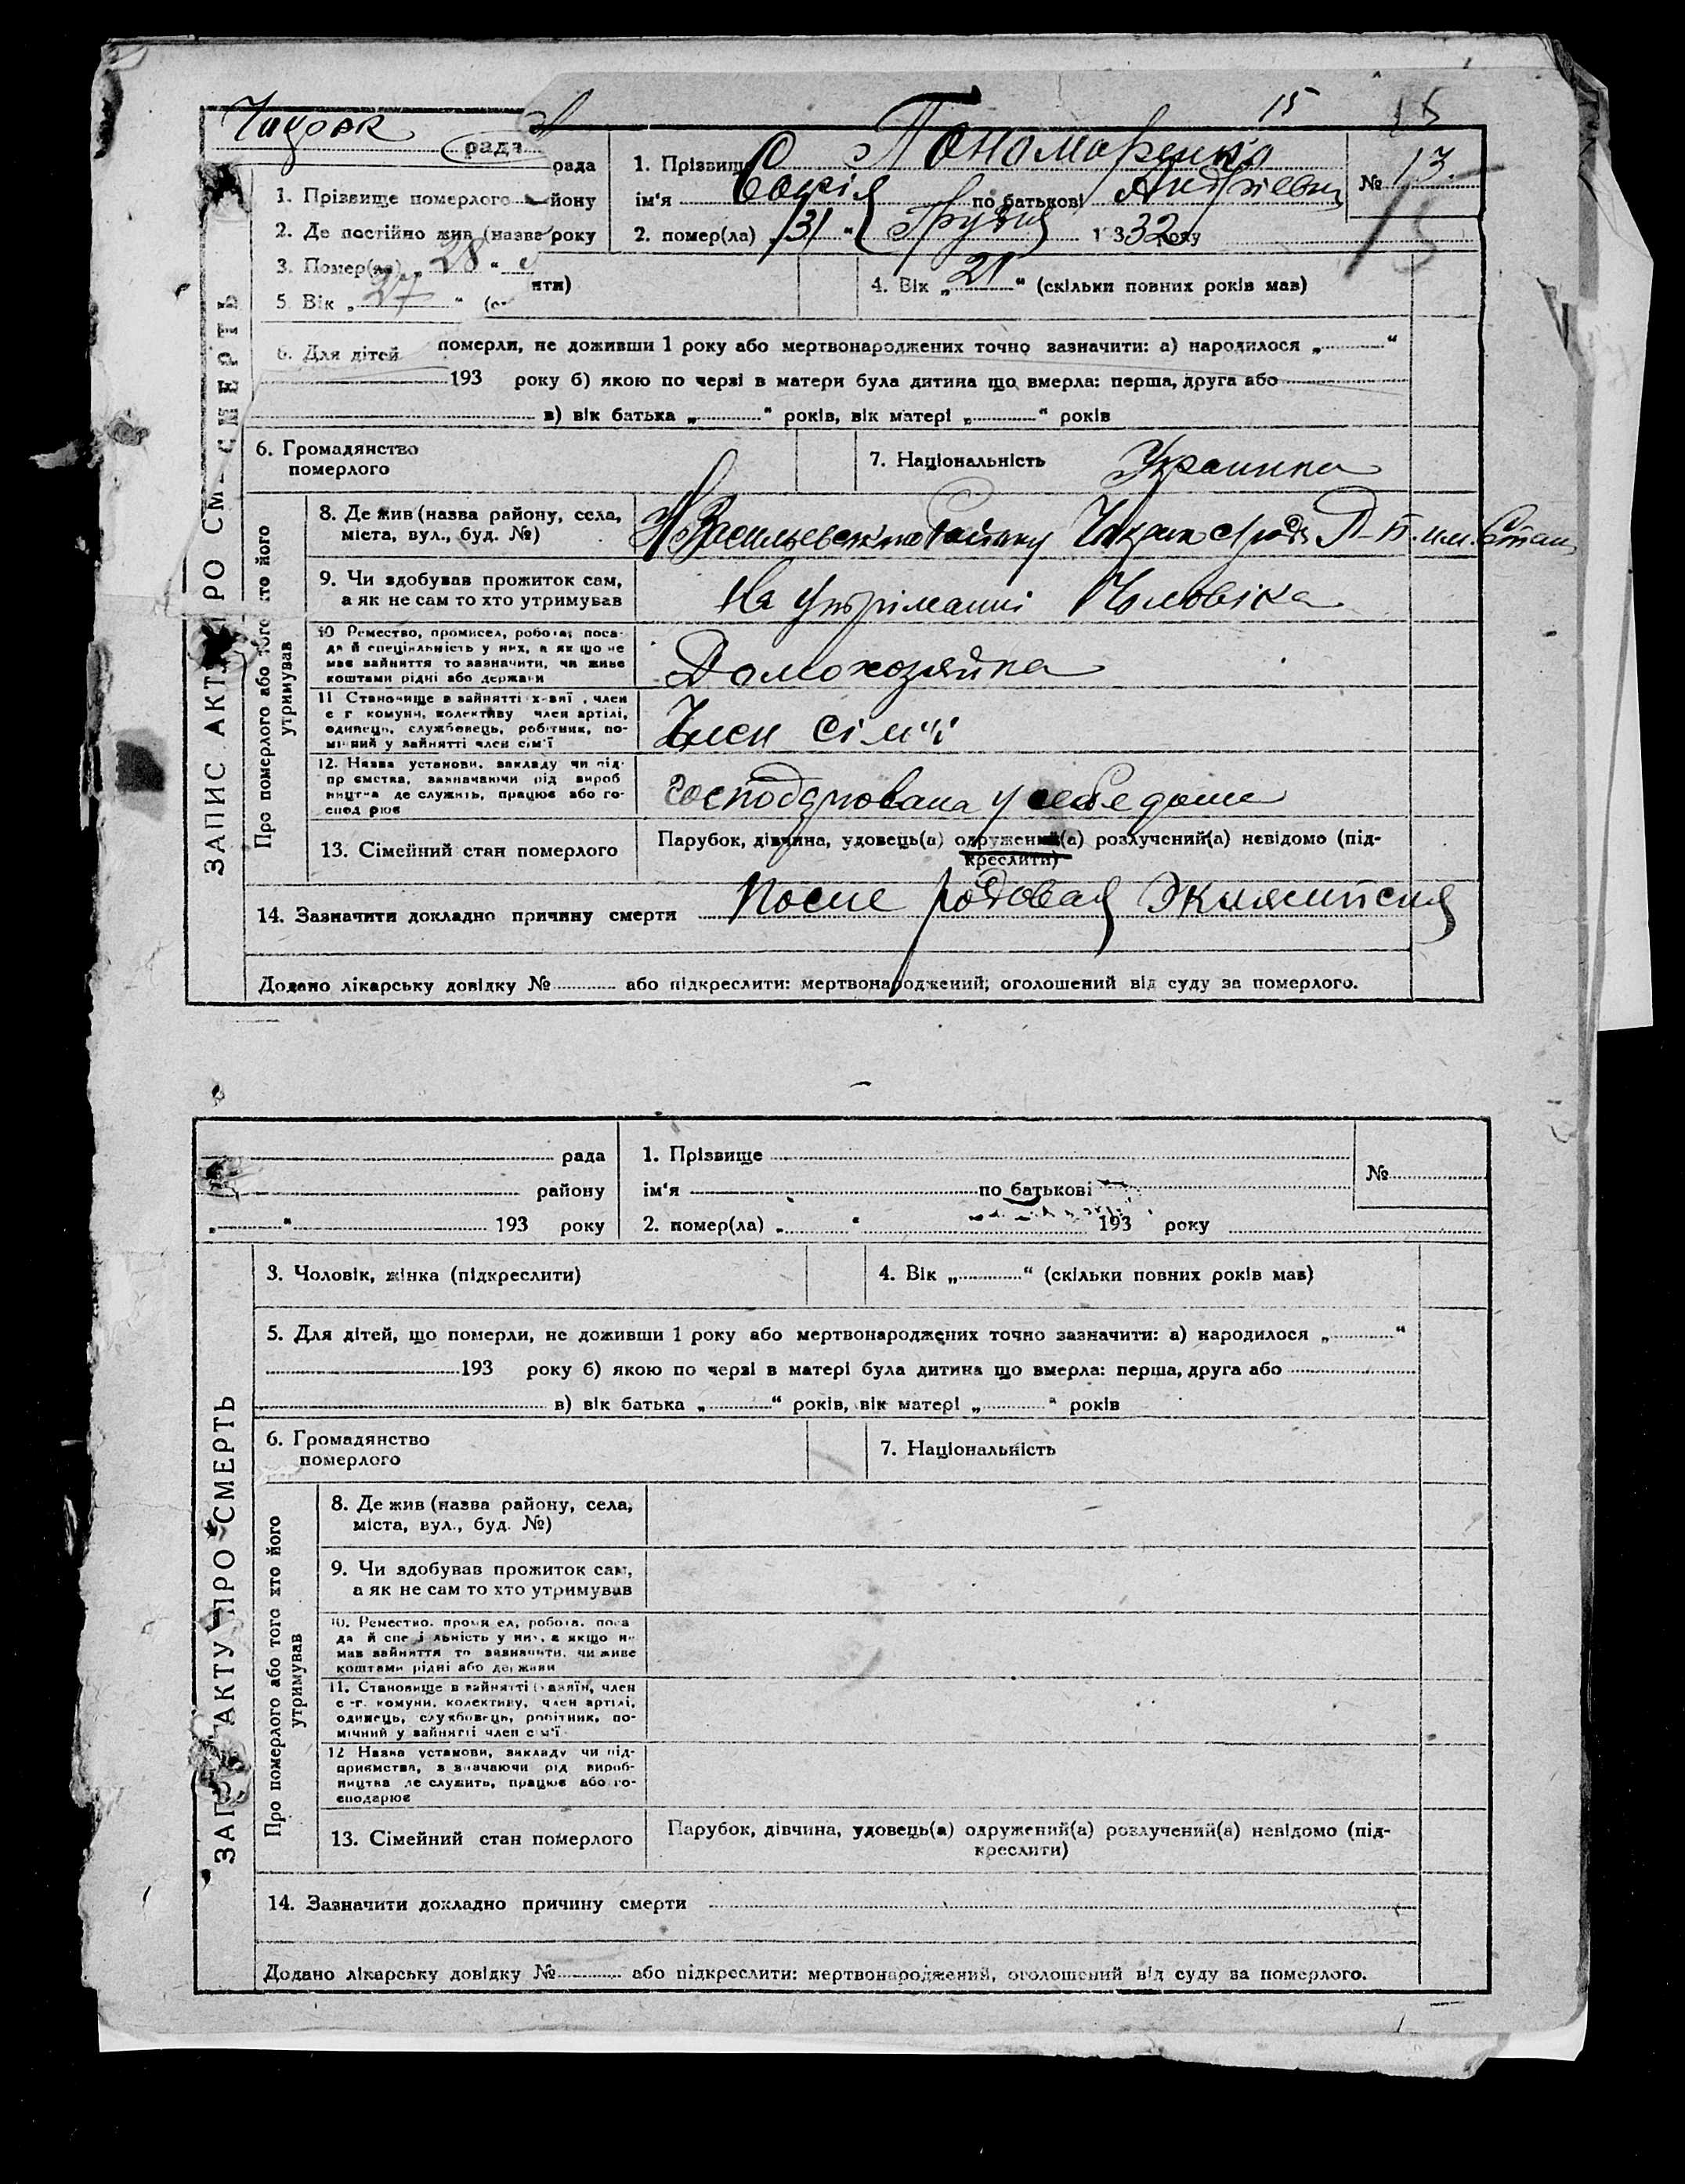 Чкдрак
рада
15
15
рада
1. Прізвище Пономаренко
№ 13.
1. Прізвище померлого
йону
ім'я Софія по батькові Андріевна
15
2. Де постійно жив (назва
року
2. помер(ла) „31“ Грудня 1932 року
3. Помер(ла) „28“
5. Вік „27“
яти)
4. Вік „21“ (скільки повних років мав)
6. Для дітей
померли, не доживши 1 року або мертвонароджених точно зазначити: а) народилося „ “
193 року б) якою по черзі в матери була дитина що вмерла: перша, друга або
в) вік батька „ “ років, вік матері „ “ років
6. Громадянство
померлого
7. Національність Украинка
ЗАПИС АКТУ ПРО СМЕРТЬ
Про померлого або того хто його
утримував
8. Де жив (назва району, села,
міста, вул., буд. №)
Н Васильевского Району
9. Чи здобував прожиток сам,
а як не сам то хто утримував
На утріманні Чоловіка
10 Ремество, промисел, робота, поса-
да й спеціяльність у них, а якщо не
має зайняття то зазначити, чи живе
коштами рідні або держави
Домохозяйка
11 Становище в зайнятті х-зяї, член
с г комуни, колективу член артілі,
одинець, службовець, робітник, по-
мічний у зайнятті член сім'ї
Член сім'ї
12. Назва установи, закладу чи під-
приємства, зазначаючи рід вироб
ництва де служить, працює або го-
сподарює
Господарювала у себе доме
13. Сімейний стан померлого
Парубок, дівчина, удовець(а) одружений(а) розлучений(а) невідомо (під-
креслити)
14. Зазначити докладно причину смерти После родовая Эклямпсия
Додано лікарську довідку № або підкреслити: мертвонароджений; оголошений від суду за померлого.
рада
1. Прізвище
№
району
ім'я по батькові
„ “ 193 року
2. помер(ла) „ “ 193 року
3. Чоловік, жінка (підкреслити)
4. Вік „ “ (скільки повних років мав)
5. Для дітей, що померли, не доживши 1 року або мертвонароджених точно зазначити: а) народилося „ “
193 року б) якою по черзі в матері була дитина що вмерла: перша, друга або
в) вік батька „ “ років, вік матері „ “ років
6. Громадянство
померлого
7. Національність
ЗАПИС АКТУ ПРО СМЕРТЬ
Про померлого або того хто його
утримував
8. Де жив (назва району, села,
міста, вул., буд. №)
9. Чи здобував прожиток сам,
а як не сам то хто утримував
10. Ремество, промисел, робота, поса
да й спеціяльність у них, а якщо не
мав зайняття то зазначити, чи живе
коштами рідні або держави
11. Становище в зайнятті хазяїн, член
с-г. комуни, колективу, член артілі,
одинець, службовець, робітник, по-
мічний у зайнятті член сім'ї
12 Назва установи, закладу чи під-
приємства, зазначаючи рід вироб-
ництва де служить, працює або го-
сподарює
13. Сімейний стан померлого
Парубок, дівчина, удовець(а) одружений(а) розлучений(а) невідомо (під-
креслити)
14. Зазначити докладно причину смерти
Додано лікарську довідку № або підкреслити: мертвонароджений, оголошений від суду за померлого.